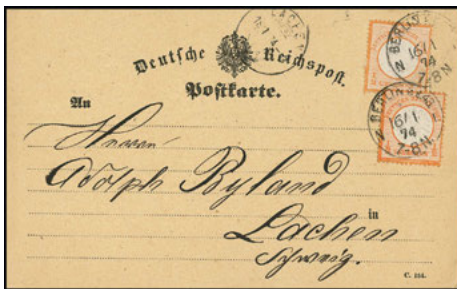 LACHEN
Deutsche Reichspost.
Postkarte.
BERLIN N
16/1
74
7-8N
An
BERLIN N
16/1
74
7-8N.
Herrn
Adolph Byland
in
Lachen
Schweiz.